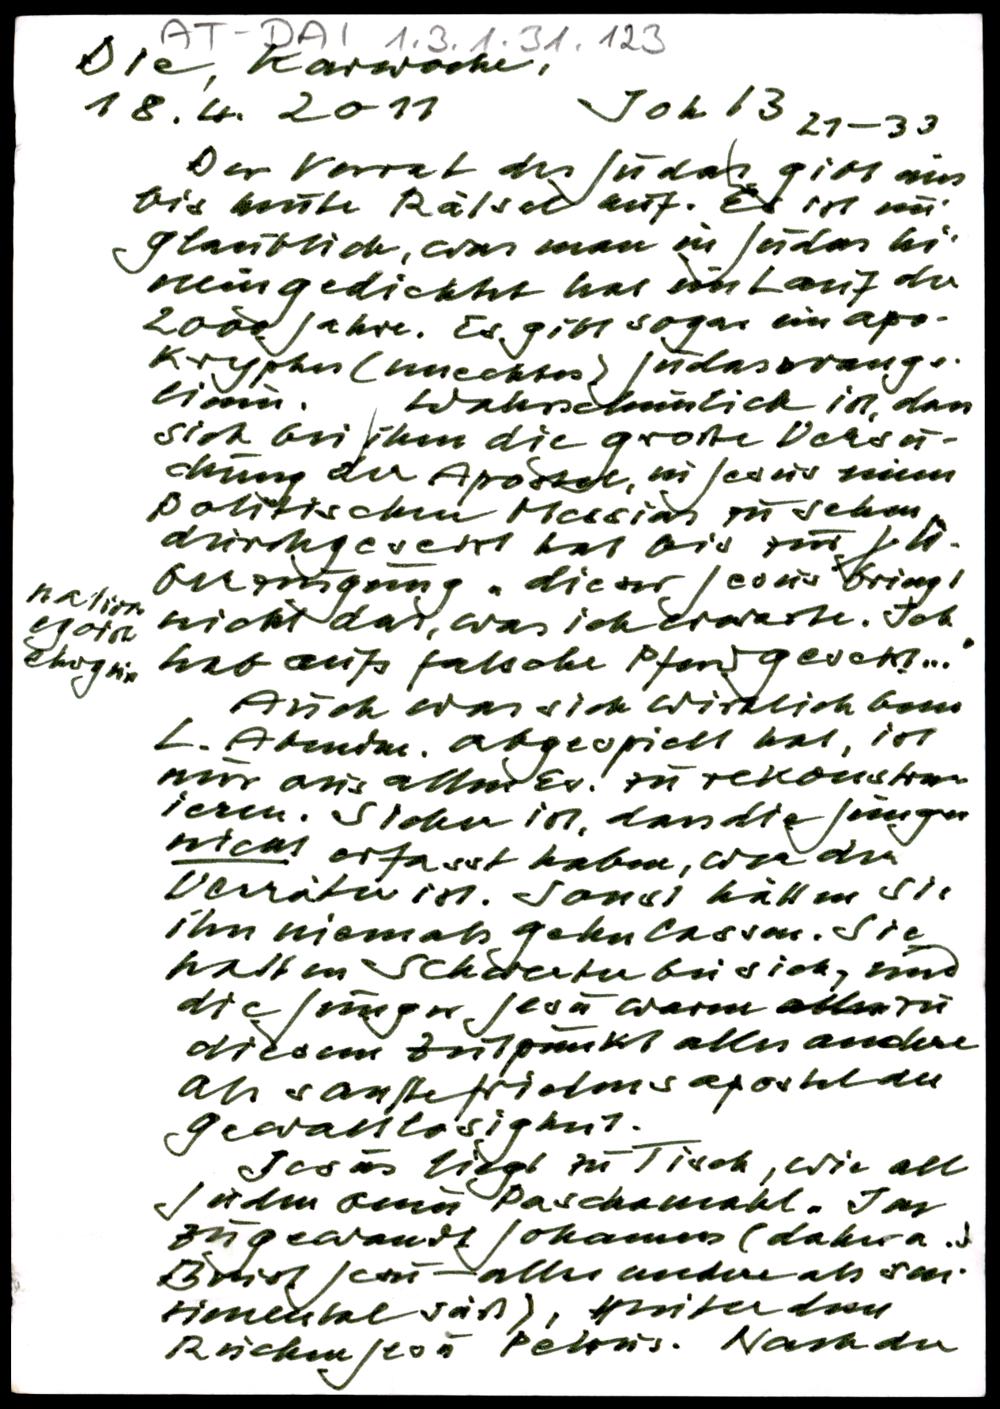 AT-DAI 1.3.1.31.123
Die, Karwoche,
18.4.2011 Joh 13 21-33
Der Verrat des Judas gibt uns
bis heute Rätsel auf. Es ist un
glaublich, was man in Judas hi-
neingedichtet hat im Lauf der
2000 Jahre. Es gibt sogar ein apo-
kryphes (unechtes) Judasevange-
lium. Wahrscheinlich ist, dass
sich bei ihm die große Versu-
chung der Apostel, in Jesus einen
politischen Messias zu sehen,
durchgesetzt hat bis zur Ü-
berzeugung "dieser Jesus bringt
nicht das, was ich erwarte. Ich
hab aufs falsche Pferd gesetzt..."
national
egoist
Ehrgeiz
Auch was sich wirklich beim
L. Abendm. abgespielt hat, ist
nur aus allen Ev. zu rekonstru-
ieren. Sicher ist, dass die Jünger
nicht erfasst haben, wer der
Verräter ist. Sonst hätten sie
ihn niemals gehn lassen. Sie
hatten Schwerter bei sich, und
die Jünger Jesu waren zu
diesem Zeitpunkt alles andere
als sanfte Friedensapostel der
Gewaltlosigkeit.
Jesus liegt zu Tisch, wie alle
Juden beim Paschamahl. Ihm
zugewandt Johannes (daher a.d
Brust Jesu - alles andere als sen-
timental süß), hinter dem
Rücken Jesu Petrus. Nach der